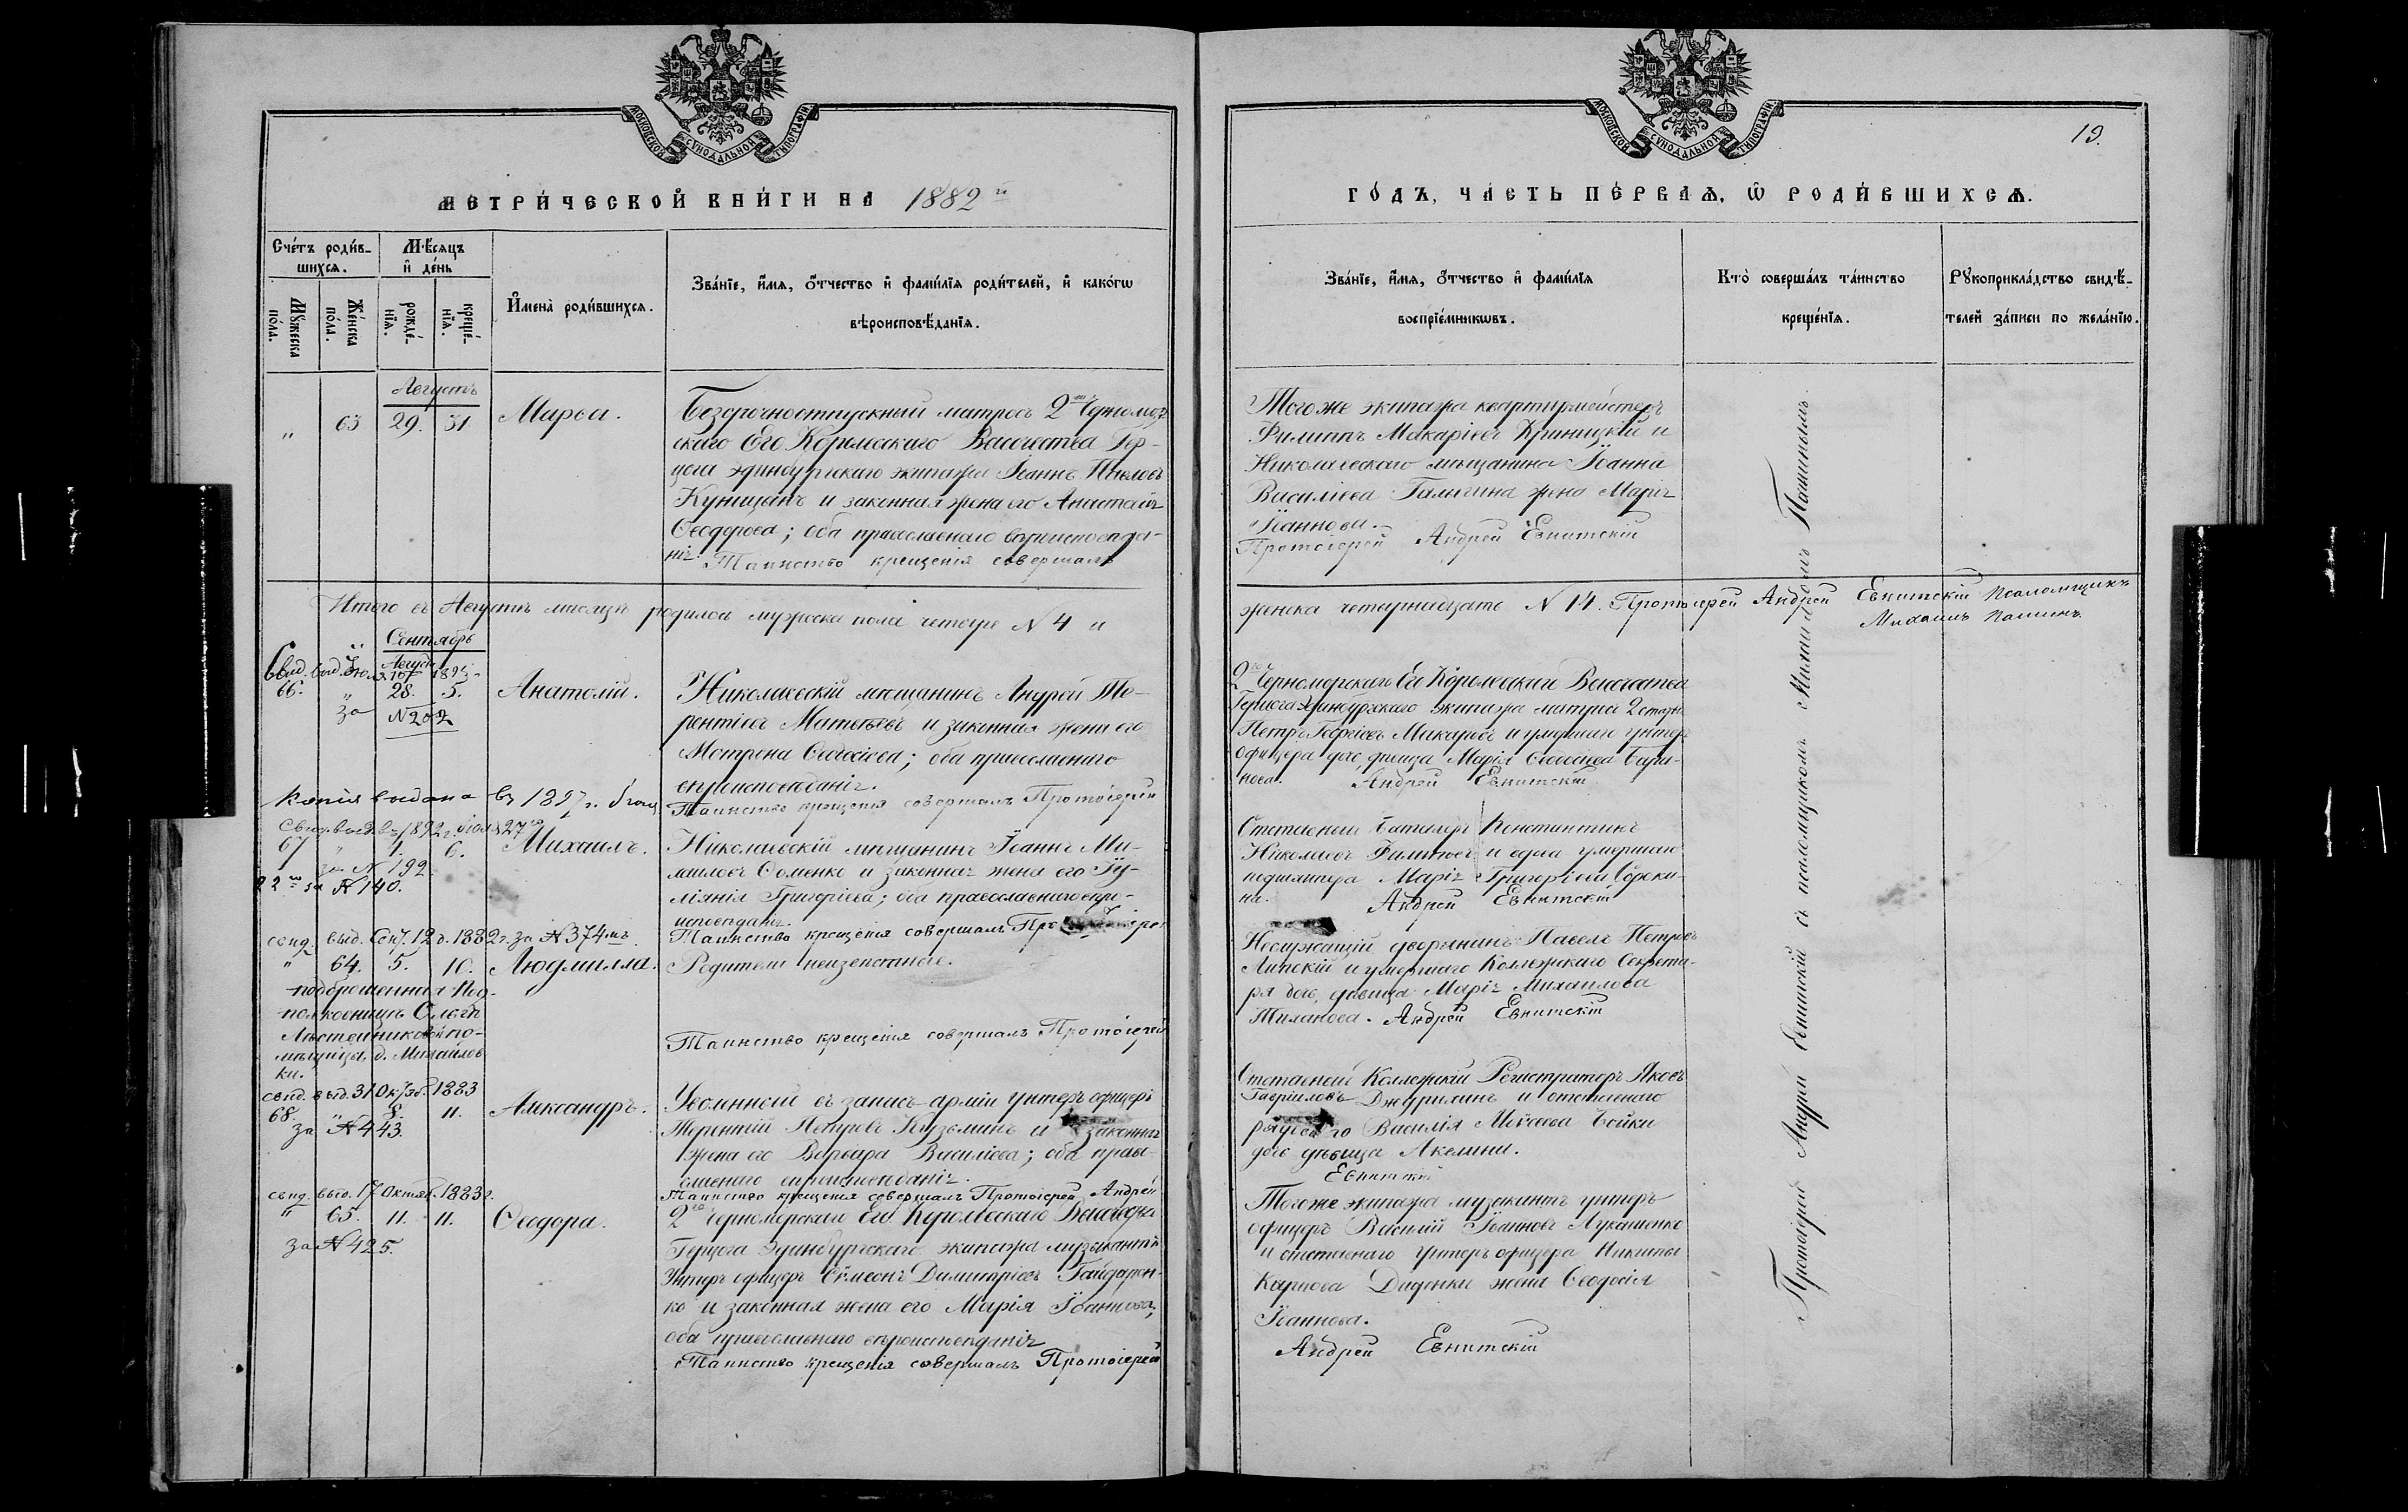 МОСКОВСКОЙ СУНОДАЛЬНОЙ ТИПОГРАФІИ
МЕТРИ́ЧЕСКОЙ КНИ́ГИ НА 1882 й
Сче́тъ роди́в-
шихсѧ.
Мꙋ́жеска
по́ла.
Же́нска
по́ла.
Мѣ́сѧцъ
и҆ де́нь
рожде́-
нїѧ.
креще́-
нїѧ.
И҆мена̀ роди́вшихсѧ.
Зва́нїе, и҆́мѧ, ѻ҆́тчество и҆ фами́лїѧ роди́телей, и҆ како́гѡ
вѣроисповѣ́данїѧ.
Августъ
„ 63 29. 31 Марѳа.
Безсрочноотпускный матросъ 2го Черномор-
скаго Его Королевскаго Высочества Гер-
цога Эдинбургскаго экипажа Іоаннъ
Куницынъ и законная жена его Анастасія
Ѳеодорова; оба православнаго вѣроисповѣда-
нія. Таинство крещенія совершалъ
Итого въ Августѣ мѣсяцѣ родилось мужеска пола четыре N 4 и
Сентябрь
Августъ
66. „ 28. 5. Анатолій.
за N 202
Николаевскій мѣщанинъ Андрей Те-
рентіевъ Матвѣевъ и законная жена его
Мотрона Ѳеодосіева; оба православнаго
вѣроисповѣданія.
Копія выдана въ 1897 г.
Таинство крещенія совершалъ Протоіерей
67 „ 1. 6. Михаилъ.
за N 192
за N 140.
Николаевскій мѣщанинъ Іоаннъ Ми-
хаиловъ Ѳоменко и законная жена его Іу-
ліянія Григоріева; оба православнаго вѣро-
исповѣданія.
свид. выд. Сент. 12 д. 1882 г. за N 374мъ
Таинство крещенія совершалъ
„ 64. 5. 10. Людмилла.
Родители неизвѣстные.
подброшенная Под-
полковницѣ
ки.
Таинство крещенія совершалъ Протоіерей
свид. выд. 31 Октяб. 1883
68. „ 8. 11. Александръ.
за N 443.
Уволенный въ запасъ арміи унтеръ офицеръ
Терентій Петровъ Кузьминъ и законная
жена его Варвара Василіева; оба право-
славнаго вѣроисповѣданія.
Таинство крещенія совершалъ Протоіерей Андрей
свид. выд. 17 Октяб. 1883 г.
„ 65. 11. 11. Ѳеодора.
за N 425.
2го Черноморскаго Его Королевскаго Высочества
Герцога Эдинбургскаго экипажа музыкантъ
Унтеръ офицеръ Сѵмеонъ Димитріевъ Гайдарен-
ко и законная жена его Марія Іоаннова,
оба православнаго вѣроисповѣданія
Таинство крещенія совершалъ Протоіерей
МОСКОВСКОЙ СУНОДАЛЬНОЙ ТИПОГРАФІИ
19.
ГО́ДЪ, ЧА́СТЬ ПЕ́РВАѦ, Ѡ҆ РОДИ́ВШИХСѦ.
Зва́нїе, и҆́мѧ, ѻ҆́тчество и҆ фами́лїѧ
воспрїе́мникѡвъ.
Кто̀ соверша́лъ та́инство
креще́нїѧ.
Рꙋкоприкла́дство свидѣ́-
телей за́писи по жела́нїю.
Тогоже экипажа квартирмейстеръ
Филиппъ Макаріевъ Криницкій и
Николаевскаго мѣщанина Іоанна
Василіева Галыгина жена Марія
Іоаннова.
Протоіерей Андрей Евнитскій
женска четырнадцать N 14. Протоіерей Андрей Евнитскій Псаломщикъ
Михаилъ Пашинъ.
2го Черноморскаго Его Королевскаго Высочества
Герцога Эдинбургскаго экипажа матросъ 2 статьи
Петръ Георгіевъ Макаровъ и умершаго унтеръ
офицера дочь дѣвица Марія Ѳеодосіева
Андрей Евнитскій
Отставный Баталеръ Константинъ
Николаевъ Филиповъ и вдова умершаго
подшкипера Марія Григоріева Сороки-
на. Андрей Евнитскій
Неслужащій дворянинъ Павелъ Петровъ
Липскій и умершаго Коллежскаго Секрета-
ря дочь, дѣвица Марія Михаилова
Тиланова. Андрей Евнитскій
Отставной Коллежскій Регистраторъ Яковъ
Гавріиловъ Джурилинъ и отставнаго
рядоваго Василія Моѵсеева Бойки
дочь дѣвица Акелина.
Евнитскій
Тогоже экипажа музыкантъ унтеръ
офицеръ Василій Іоанновъ Лукашенко
и отставнаго унтеръ офицера Никиты
Карпова Диденки жена Ѳеодосія
Іоаннова.
Андрей Евнитскій
Протоіерей Андрей Евнитскій съ псаломщикомъ Михаиломъ Пашинымъ